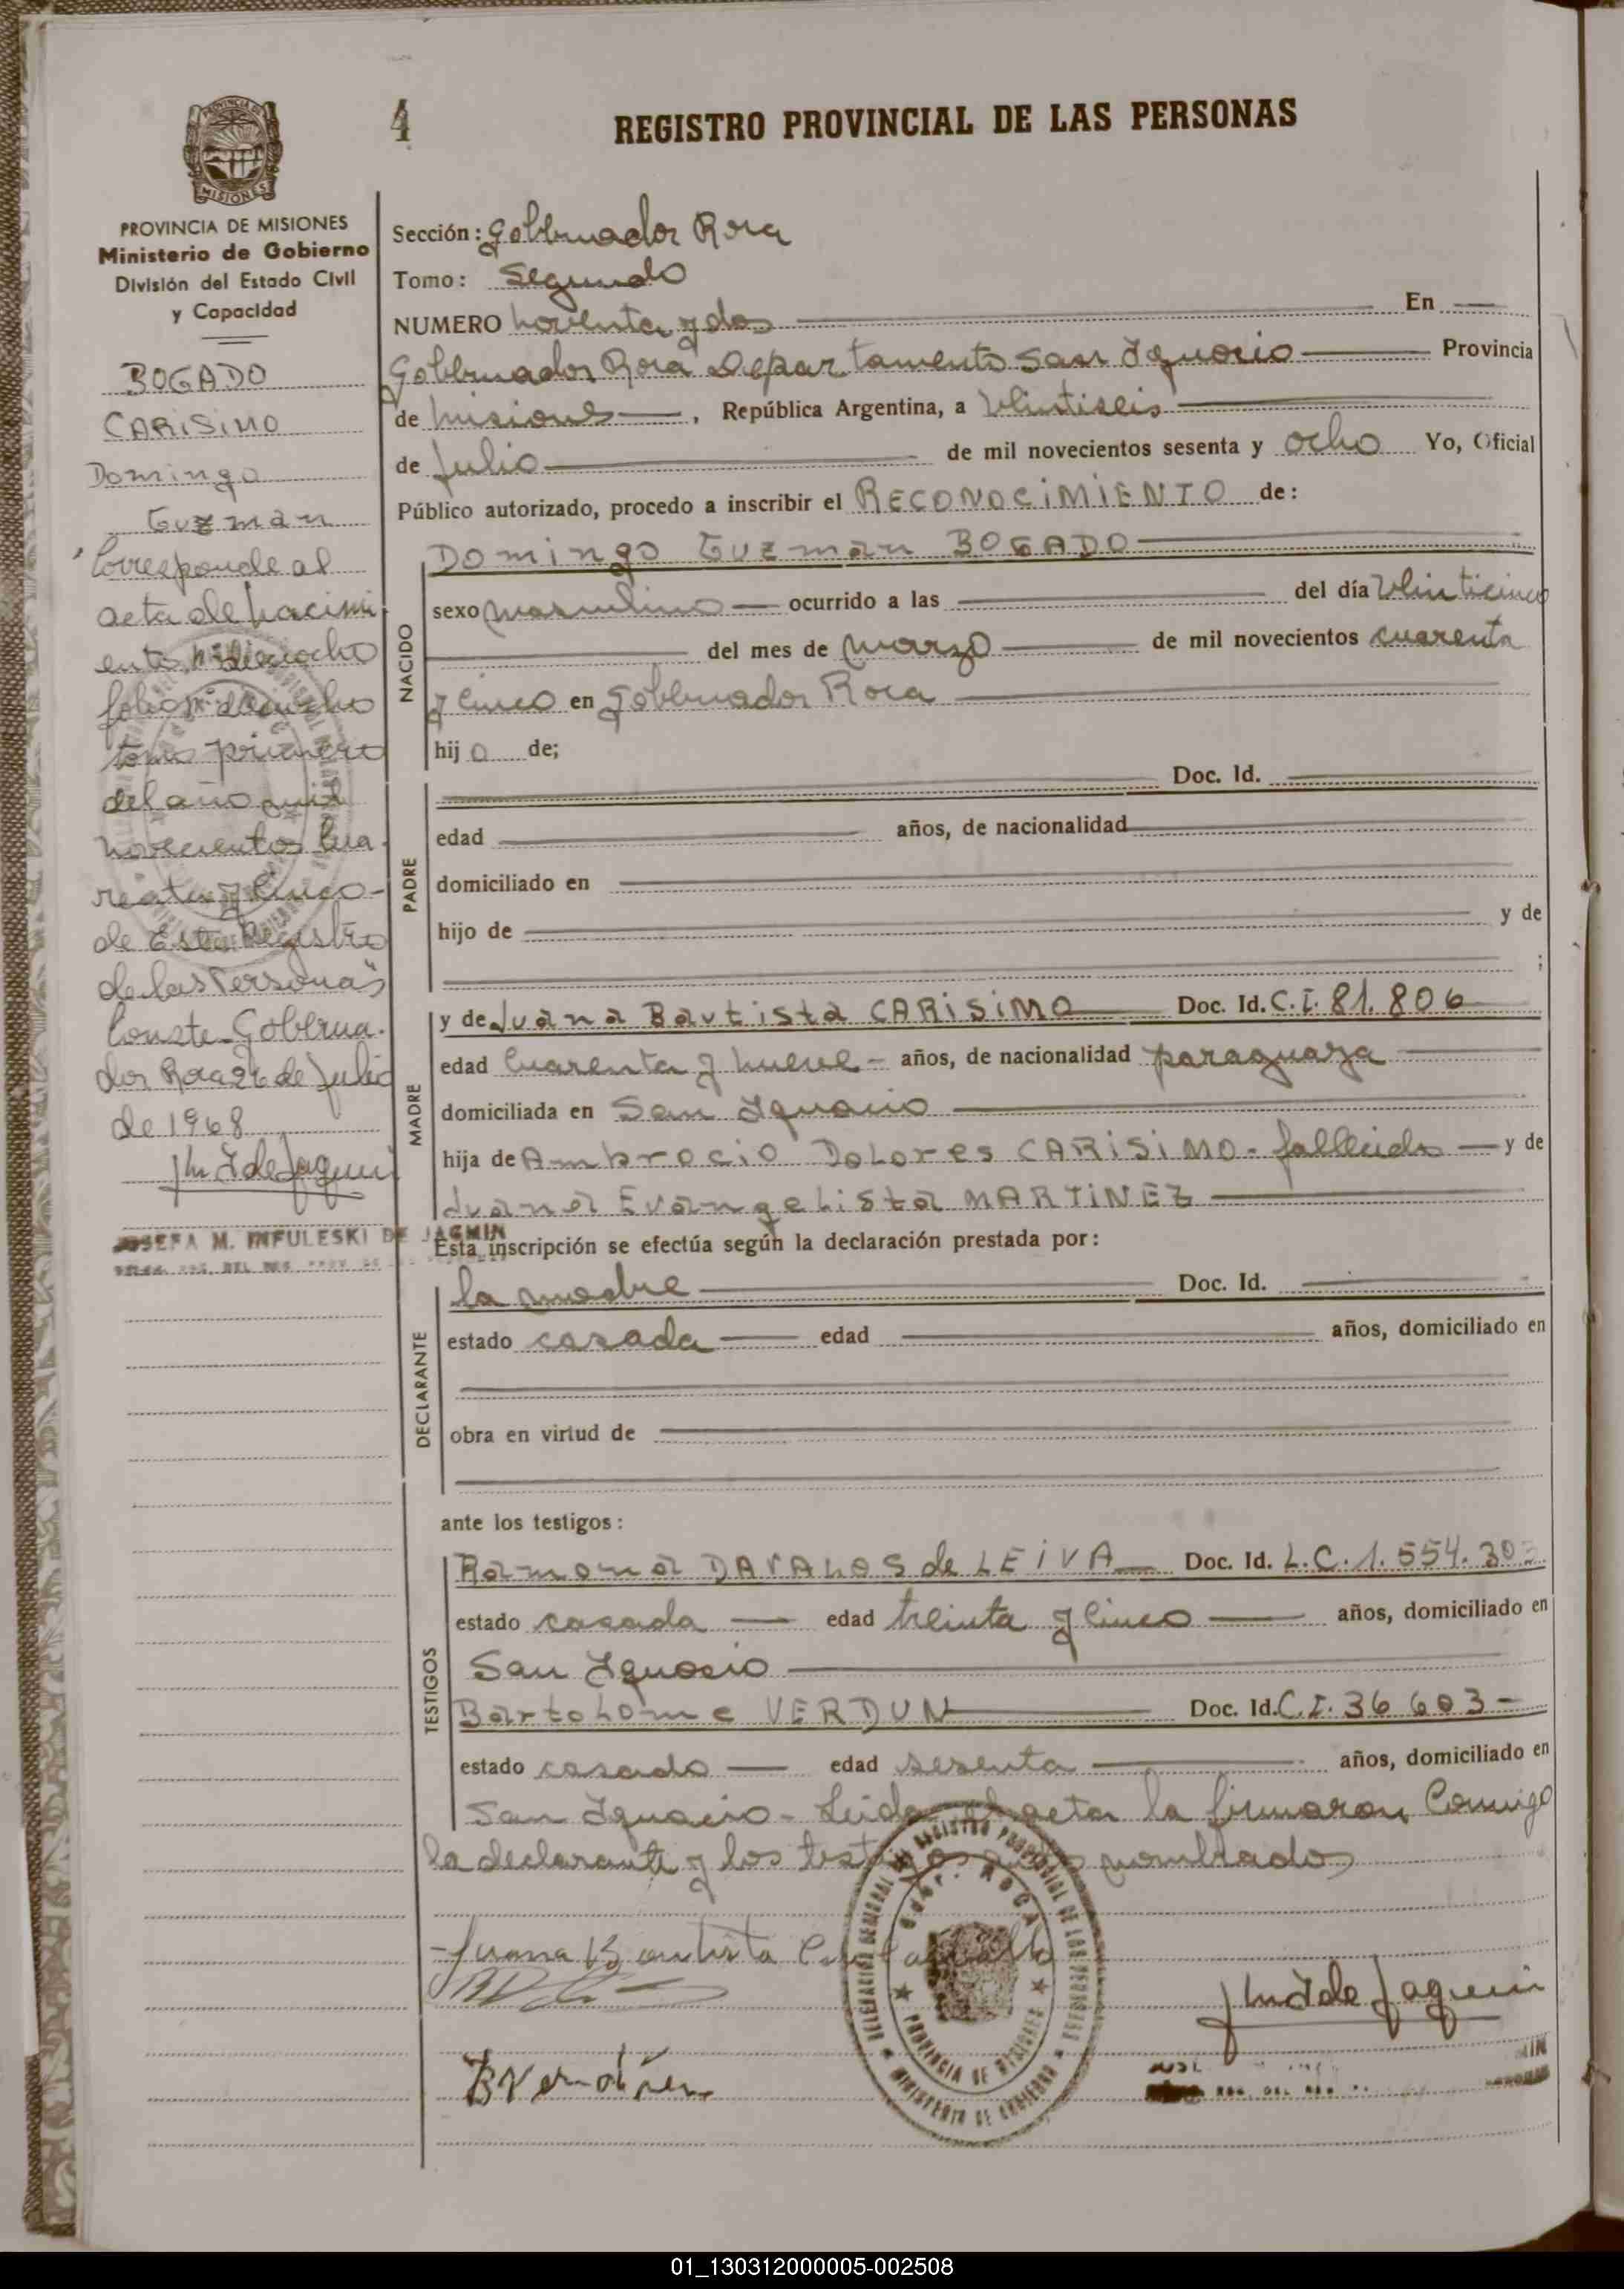 4
REGISTRO PROVINCIAL DE LAS PERSONAS
PROVINCIA DE MISIONES
Ministerio de Gobierno
División del Estado Civil
y Capacidad
BOGADO
CARiSiMO
Domingo
Guzman
Corresponde al
acta de nacimi
ento nº dieciocho
folio nº dieciocho
tomo primero
del año mil
novecientos cua
renta y cinco-
de Este Registro
de las Personas
Conste-Goberna-
dor Roca 26 de Julio
de 1968
JOSEFA M. INFULESKI DE JAGMIN
Sección: Gobernador Roca
Tomo: Segundo
NUMERO noventa y dos En
Gobernador Roca Departamento San Ignacio Provincia
de Misiones, República Argentina, a veintiseis
de Julio de mil novecientos sesenta y ocho Yo, Oficial
Público autorizado, procedo a inscribir el RECONOCiMiENTO de:
NACIDO
Domingo Guzman BOGADO
sexo masculino ocurrido a las del día veinticinco
del mes de marzo de mil novecientos cuarenta
y cinco en Gobernador Roca
hij o de;
PADRE
Doc. Id.
edad años, de nacionalidad
domiciliado en
hijo de y de
;
MADRE
y de Juana Bautista CARiSiMO Doc. Id. C.I. 81.806
edad cuarenta y nueve - años, de nacionalidad paraguaya
domiciliada en San Ignacio
hija de Ambrocio Dolores CARiSiMO - fallecido y de
Juana Evangelista MARTiNEZ
Esta inscripción se efectúa según la declaración prestada por:
DECLARANTE
la madre Doc. Id.
estado casada edad años, domiciliado en
obra en virtud de
ante los testigos:
TESTIGOS
Ramona DAVALOS de LEiVA Doc. Id. L.C. 1.554.303
estado casada edad treinta y cinco años, domiciliado en
San Ignacio
Bartolome VERDUN Doc. Id. C.I. 36 603 -
estado casado edad sesenta años, domiciliado en
San Ignacio - Leida el acta la firmaron Conmigo
la declarante y los testigos nombrados
Juana Bautista
DELEGACION REGISTRO PROVINCIAL DE LAS PERSONAS
Gdor. ROCA
PROVINCIA DE MISIONES
MINISTERIO DE GOBIERNO
01_130312000005-002508